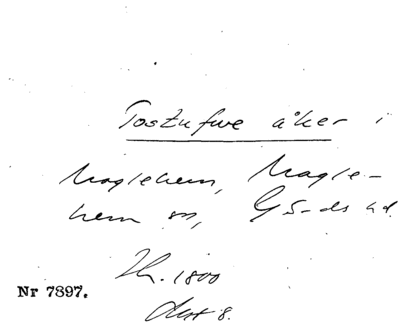 Tostufwe åker i
Maglehem, Magle-
hem sn, Gärds hd.
Lh. 1800
Akt 8.
Nr 7897.